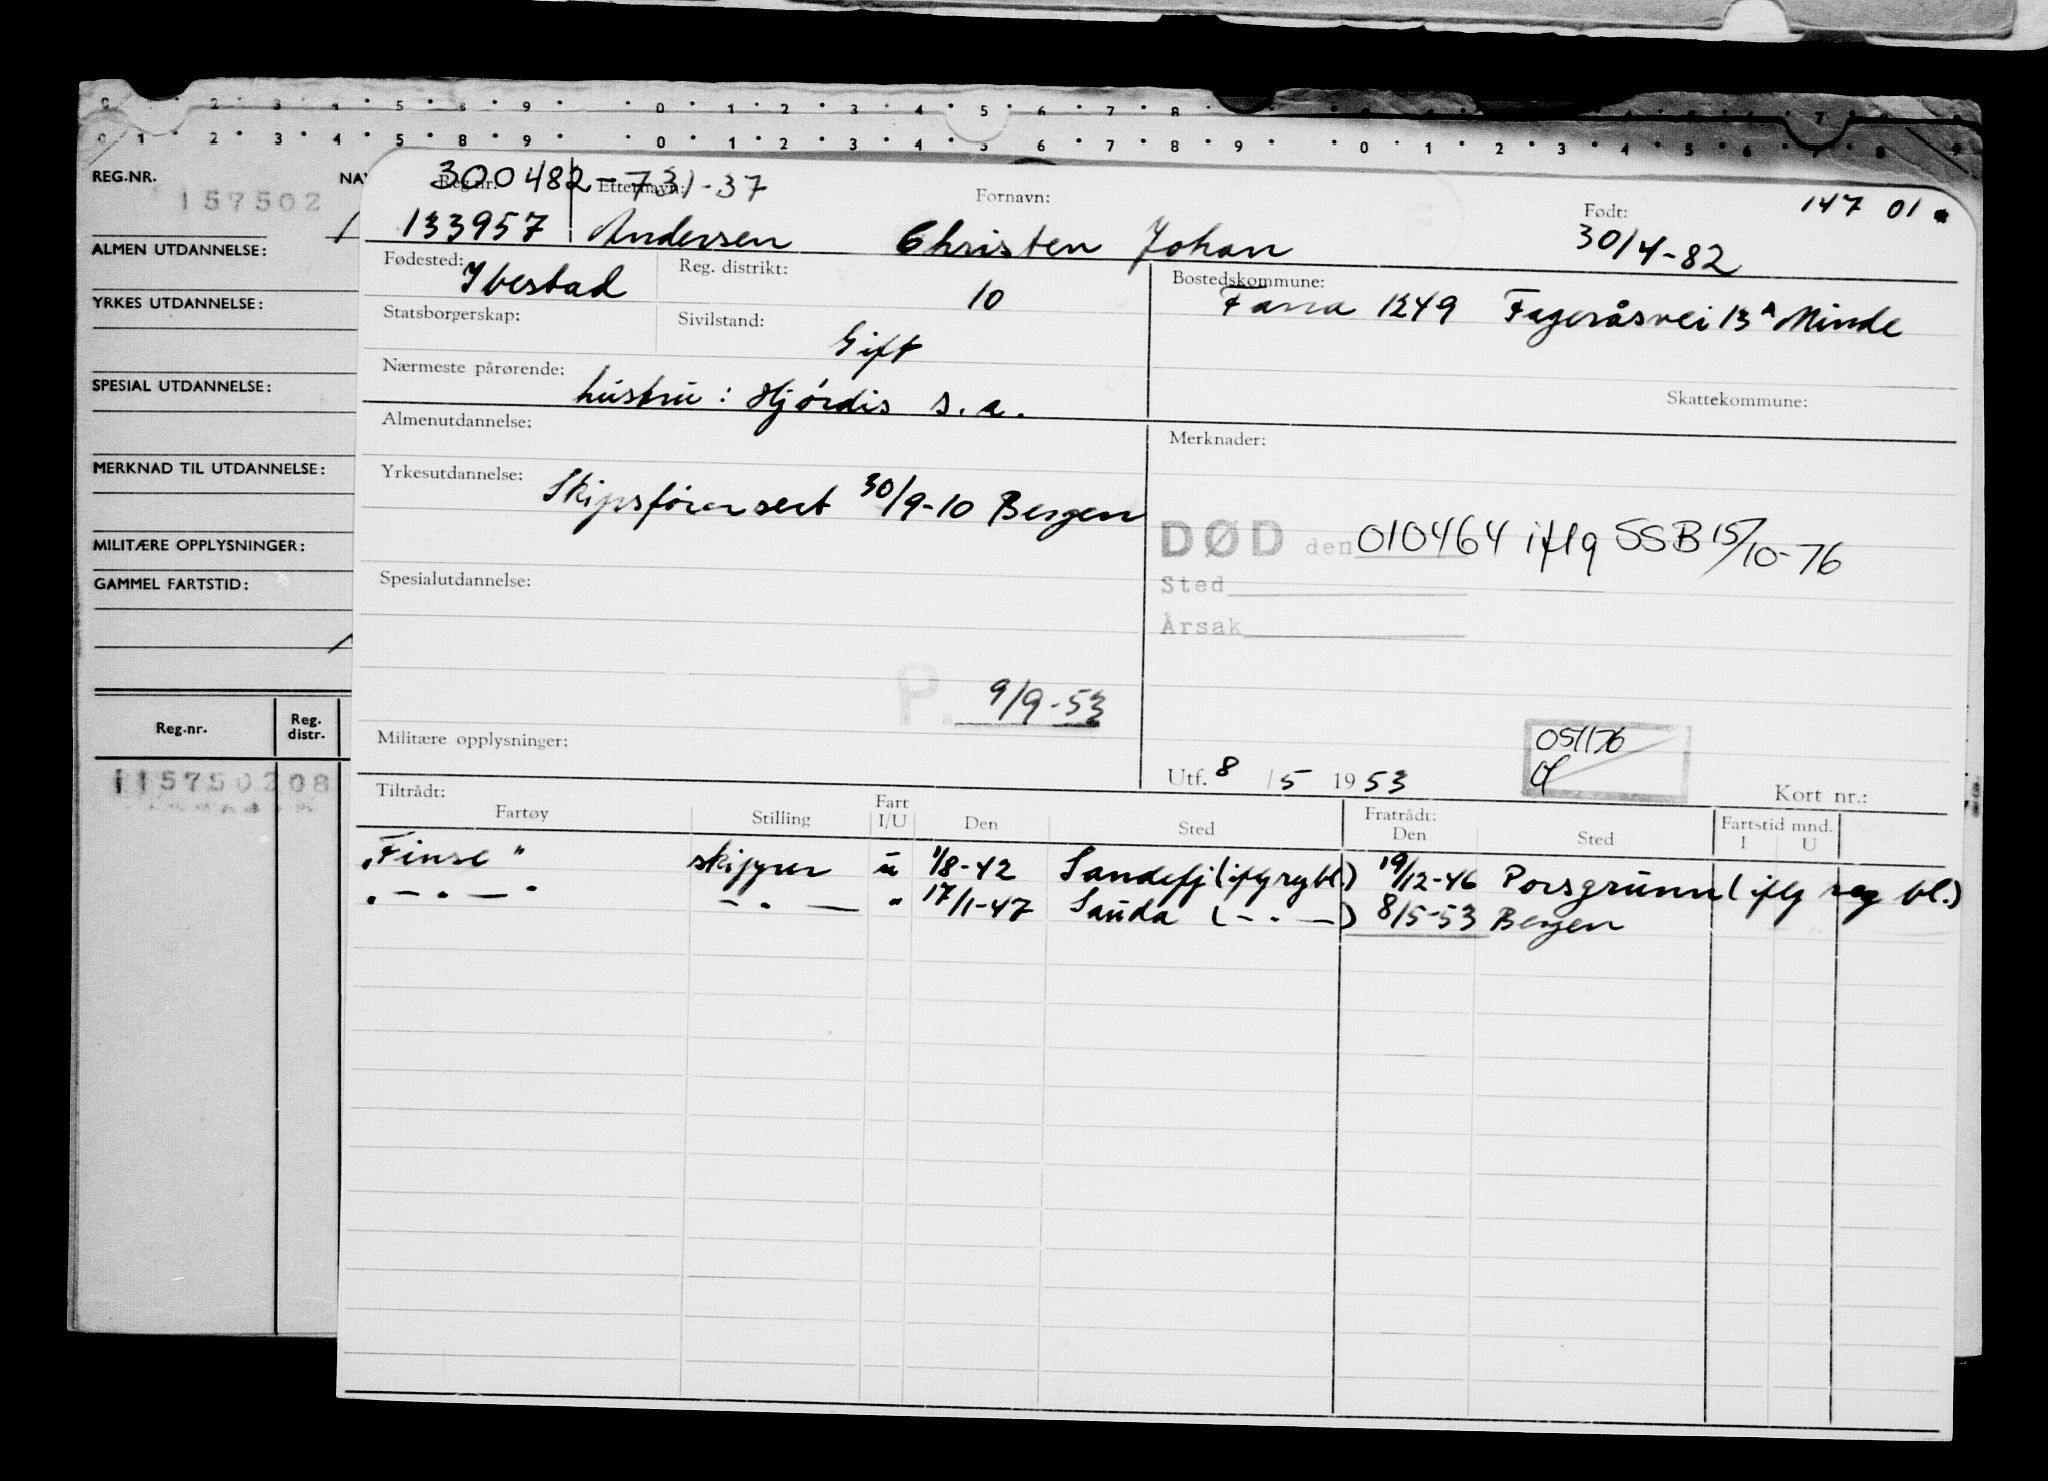 0 2 3 4 5 8 9 0 1 2 3 4 5 6 7 8
0 1 2 3 4 5 8 9 0 1 2 3 4 5 6 7 8 9 0 1 2 3 4 5 6 7 8 9
REG.NR. NAV
157502
ALMEN UTDANNELSE:
YRKES UTDANNELSE:
SPESIAL UTDANNELSE:
MERKNAD TIL UTDANNELSE:
MILITÆRE OPPLYSNINGER:
GAMMEL FARTSTID:
Reg.nr. Reg. distr.
115750208
300482-731-37
Reg.nr. Etternavn: Fornavn: Født: 147 01
133957 Andersen Christen Johan 30/4-82
Fødested: Ibestad Reg. distrikt: 10 Bostedskommune: Fana 1249 Fageråsvei 13A Minde
Statsborgerskap: Sivilstand: Gift
Nærmeste pårørende: hustru: Hjørdis s. a.
Skattekommune:
Almenutdannelse:
Merknader:
Yrkesutdannelse: Skipsførersert 30/9-10 Bergen
DØD den 010464 iflg SSB 15/10-76
Sted
Årsak
Spesialutdannelse:
P. 9/9-53
Militære opplysninger:
Utf. 8 / 5 1953
051176
Kort nr.:
Tiltrådt: Fratrådt:
Fartøy Stilling Fart I/U Den Sted Den Sted Fartstid mnd. I U
"Finse" skipper u 1/8-42 Sandefj (iflg regbl.) 19/12-46 Porsgrunn (iflg reg bl.)
" - . - " - . - " 17/1-47 Sauda (- . -) 8/5-53 Bergen